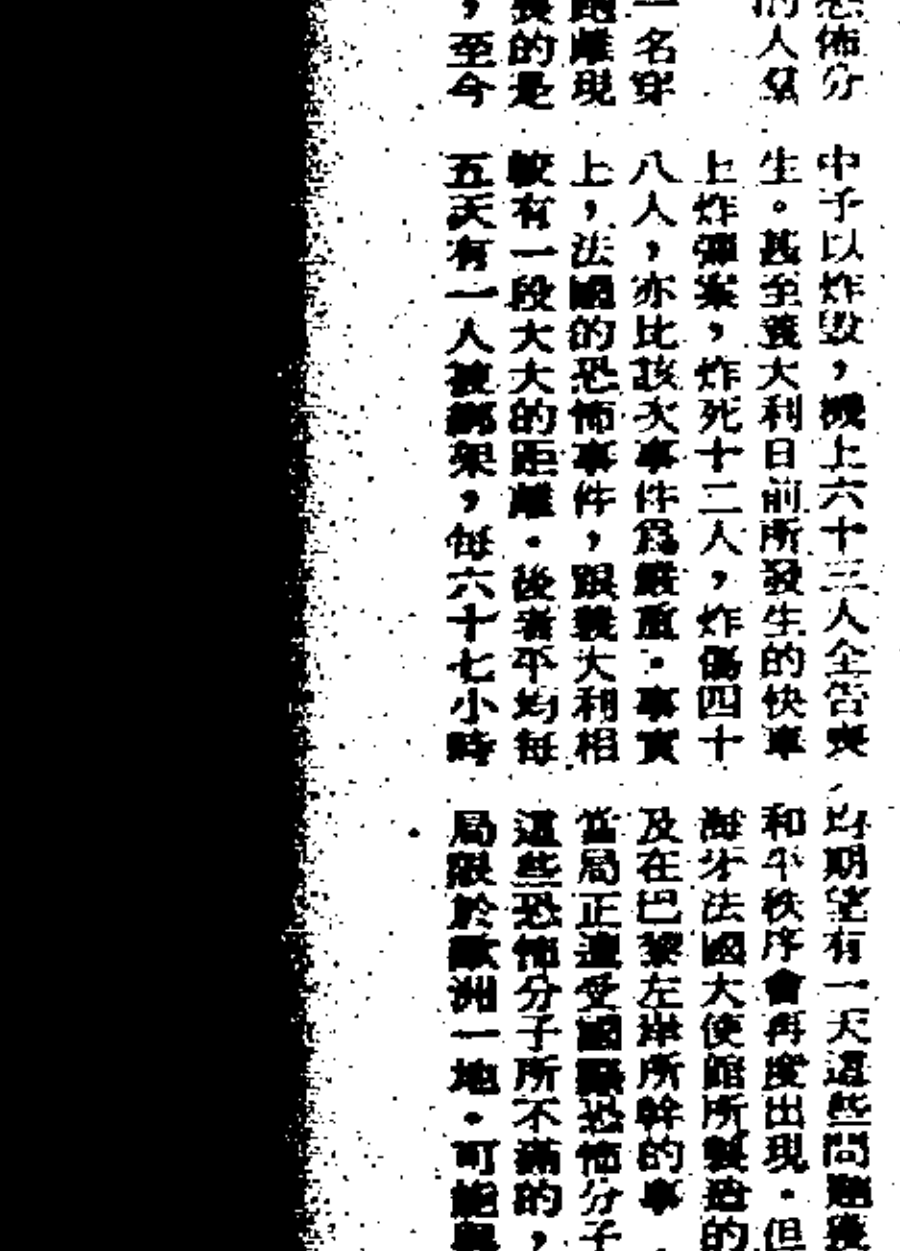 恐怖分
的人員
一名穿
跑離現
的是
，至今
中予以炸毀，機上六十三人全告喪
生。甚至義大利日前所發生的快車
上炸彈案，炸死十二人，炸傷四十
八人，亦比該次事件爲嚴重．事實
上，法國的恐怖事件，跟義大利相
較有一段大大的距離．後者平均每
五天有一人被綁架，每六十七小時
均期望有一天這些問題獲
和平秩序會再度出現．但
海牙法國大使館所製造的
及在巴黎左岸所幹的事
當局正遭受國際恐怖分子
這些恐怖分子所不滿的，
局限於歐洲一地．可能與